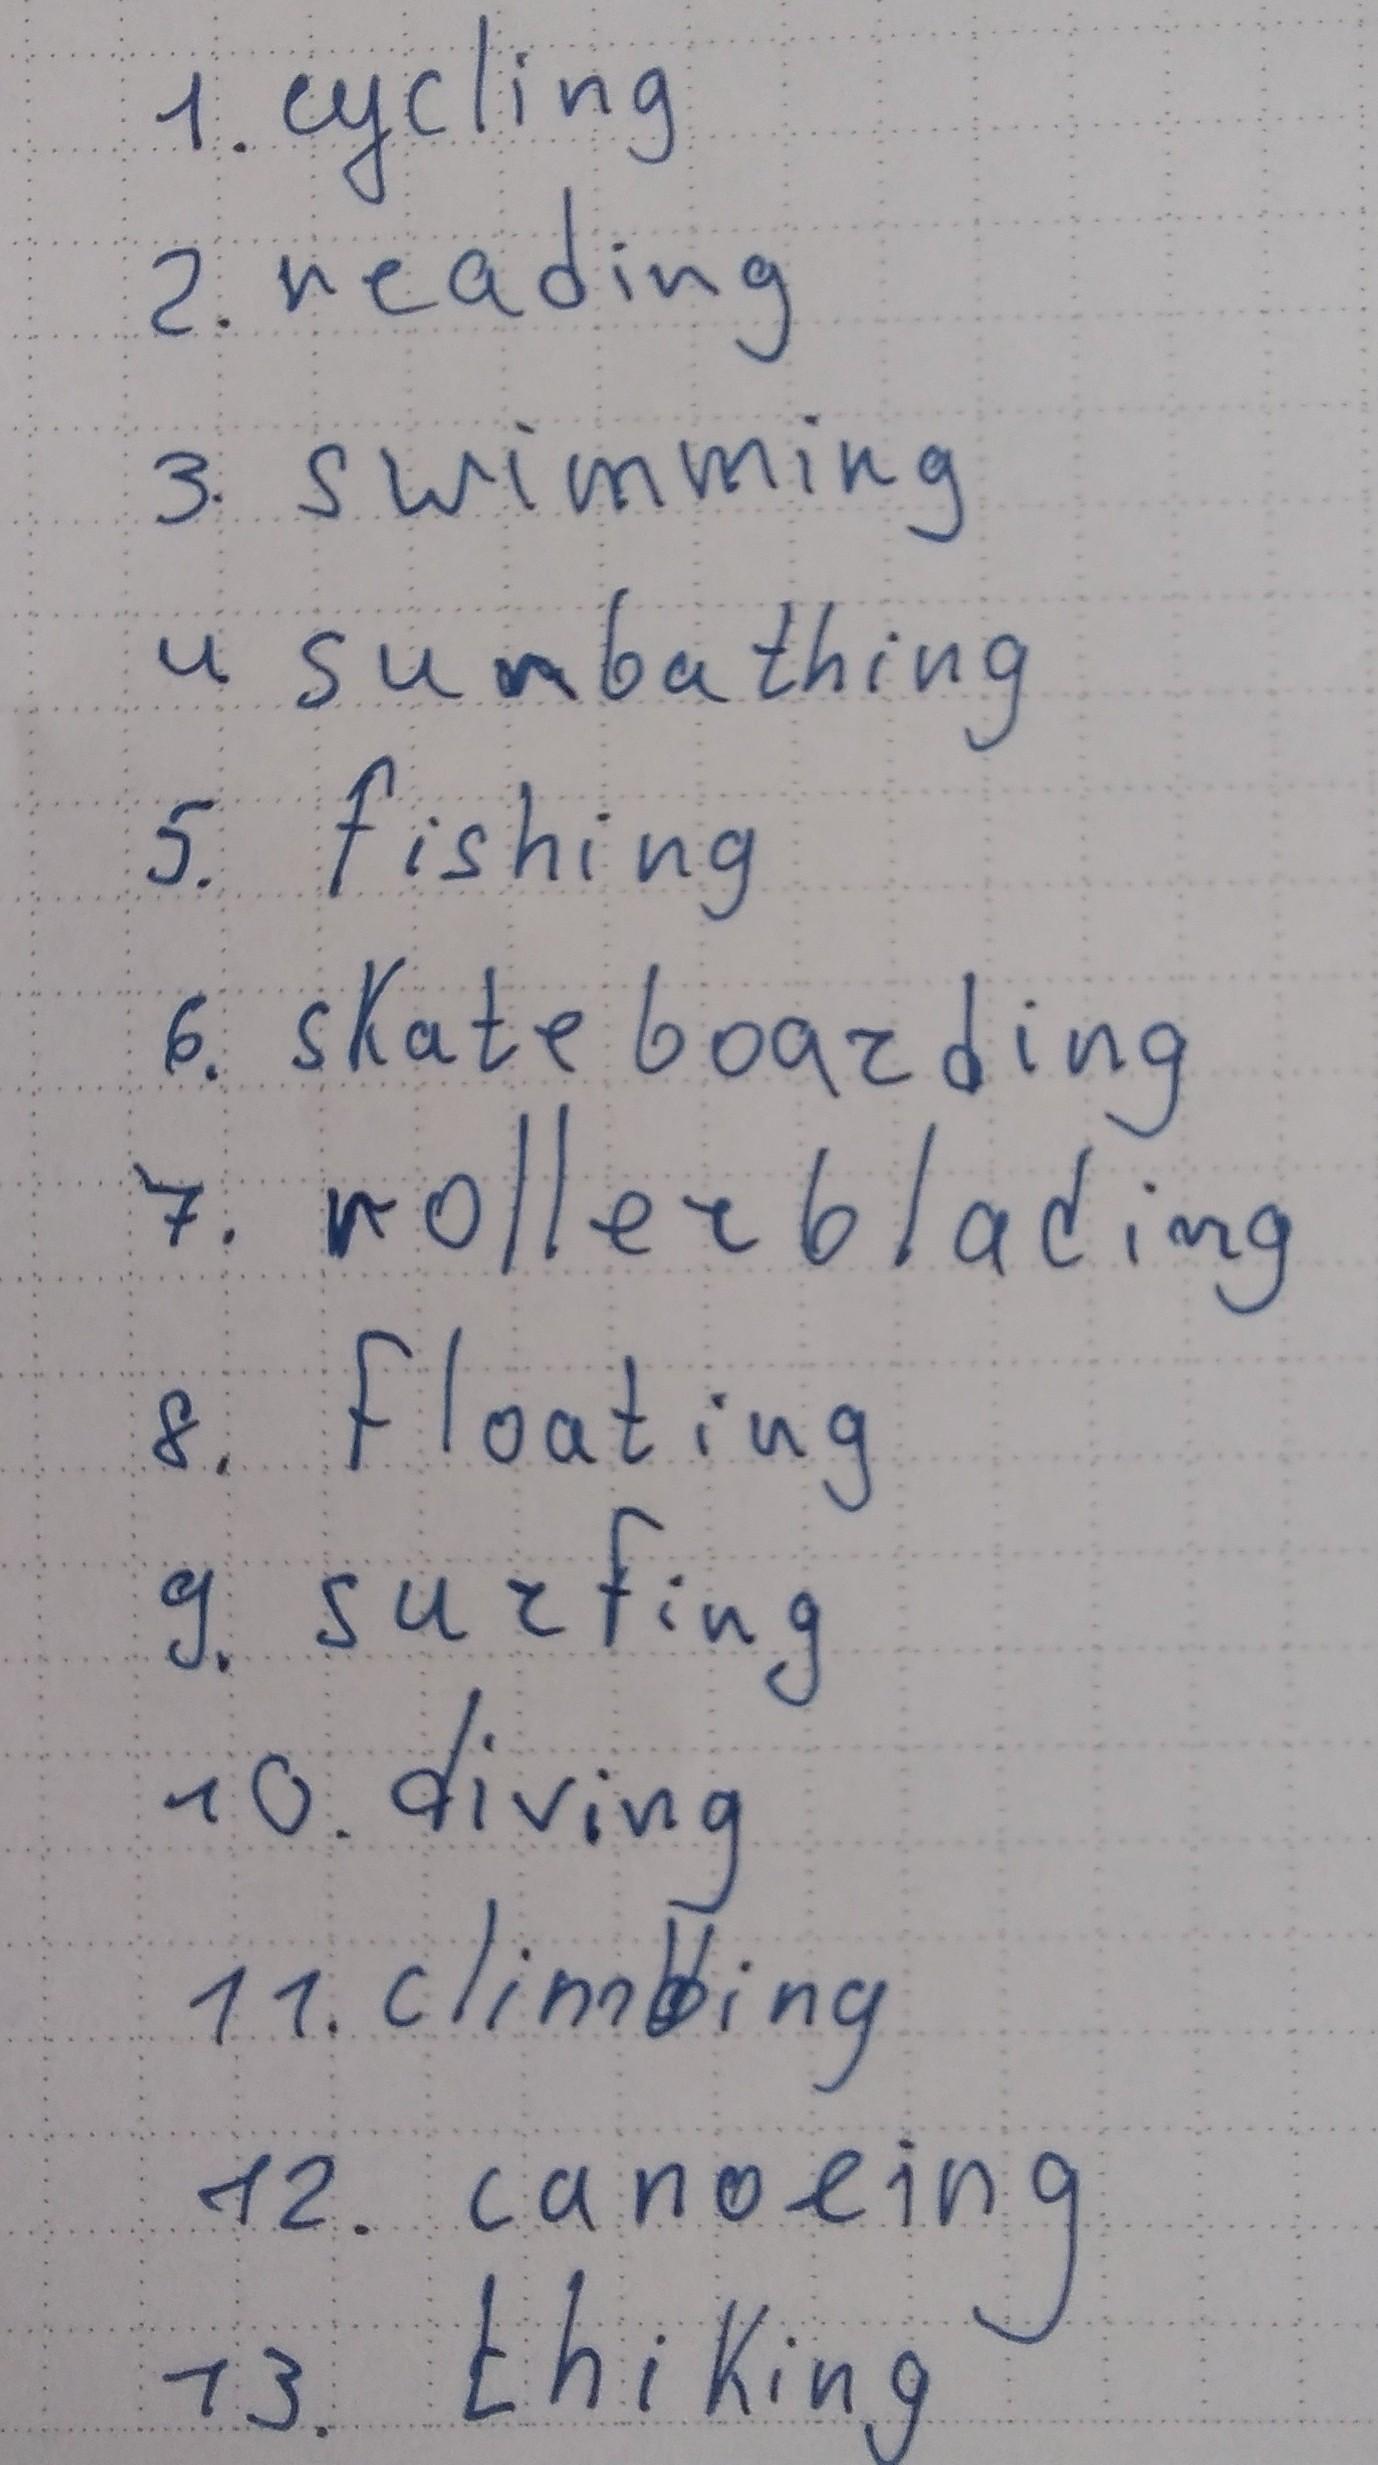 1. cycling
2. reading
3. swimming
4 sunbathing
5. fishing
6. skateboarding
7. rollerblading
8. floating
9. surfing
10. diving
11. climbing
12. canoeing
13. thiking